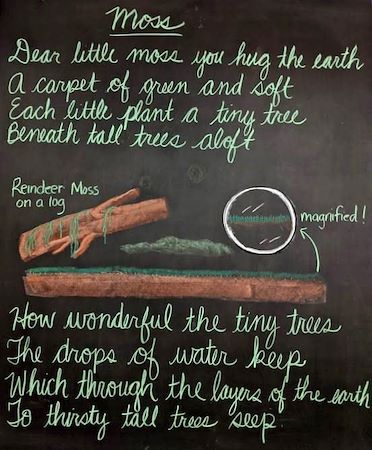 Moss
Dear little moss you hug the earth
A carpet of green and soft
Each little plant a tiny tree
Beneath tall trees aloft
Reindeer Moss
on a log
magnified!
How wonderful the tiny trees
The drops of water keep
Which through the layers of the earth
To thirsty tall trees seep.